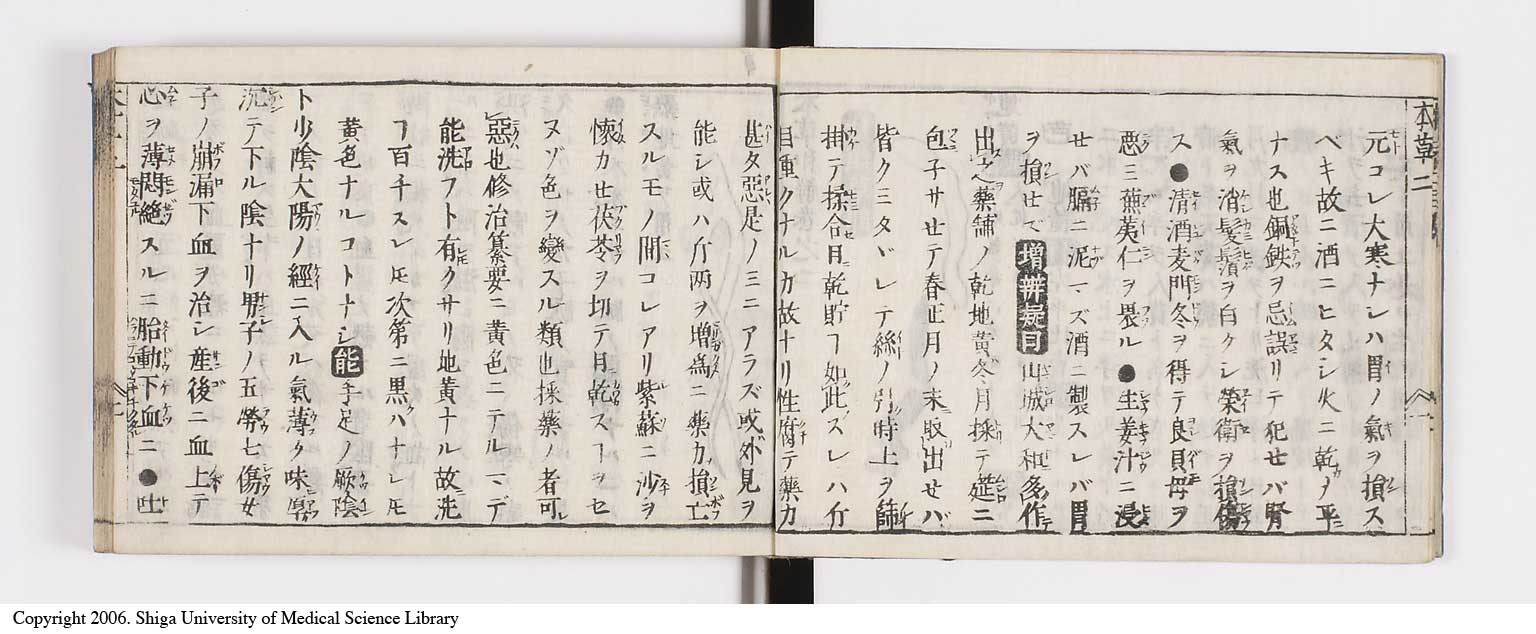 本草二
元コレ大寒ナレハ胃ノ氣ヲ損ス
ヘキ故ニ酒ニヒタシ火ニ乾ノ平
ナス也銅鉄ヲ忌誤リテ犯せバ腎
氣ヲ消髮鬚ヲ白クシ榮衛ヲ損傷
ス●清酒麦門冬ヲ得テ良貝母ヲ
惡ミ蕪荑仁ヲ畏ル●生姜汁ニ浸
せバ膈ニ泥マズ酒ニ製スレバ胃
ヲ損せズ 増辨疑目 山城大和多作
出之藥舗ノ乾地黄冬月採テ莚ニ
包子サせテ春正月ノ末取出せバ
皆クミタヾレテ絲ノ引時上ヲ篩
掛テ揉合日乾貯フ如此スレハ斤
目重クナルカ故ナリ性腐テ藥力
甚タ惡是ノミニアラズ或ハ外見ヲ
能シ或ハ斤両ヲ増為ニ藥力損亡
スルモノ間コレアリ紫蘇ニ沙ヲ
懷カせ茯苓ヲ切テ日乾スフヲせ
ヌゾ色ヲ變スル類也採藥ノ者可
惡也修治纂要ニ黄色ニテルマデ
能洗フト有クサリ地黄ナル故洗
フ百千スレ𪜈次第ニ黒ハナレ𪜈
黄色ナルコトナシ 能 手足ノ厥陰
ト少陰大陽ノ經ニ入ル氣薄ク味厚
沉テ下ル陰ナリ男子ノ五勞七傷女
子ノ崩漏下血ヲ治シ産後ニ血上テ
心ヲ薄悶絶スルニ胎動下血ニ●吐
Copyright 2006. Shiga University of Medical Science Library